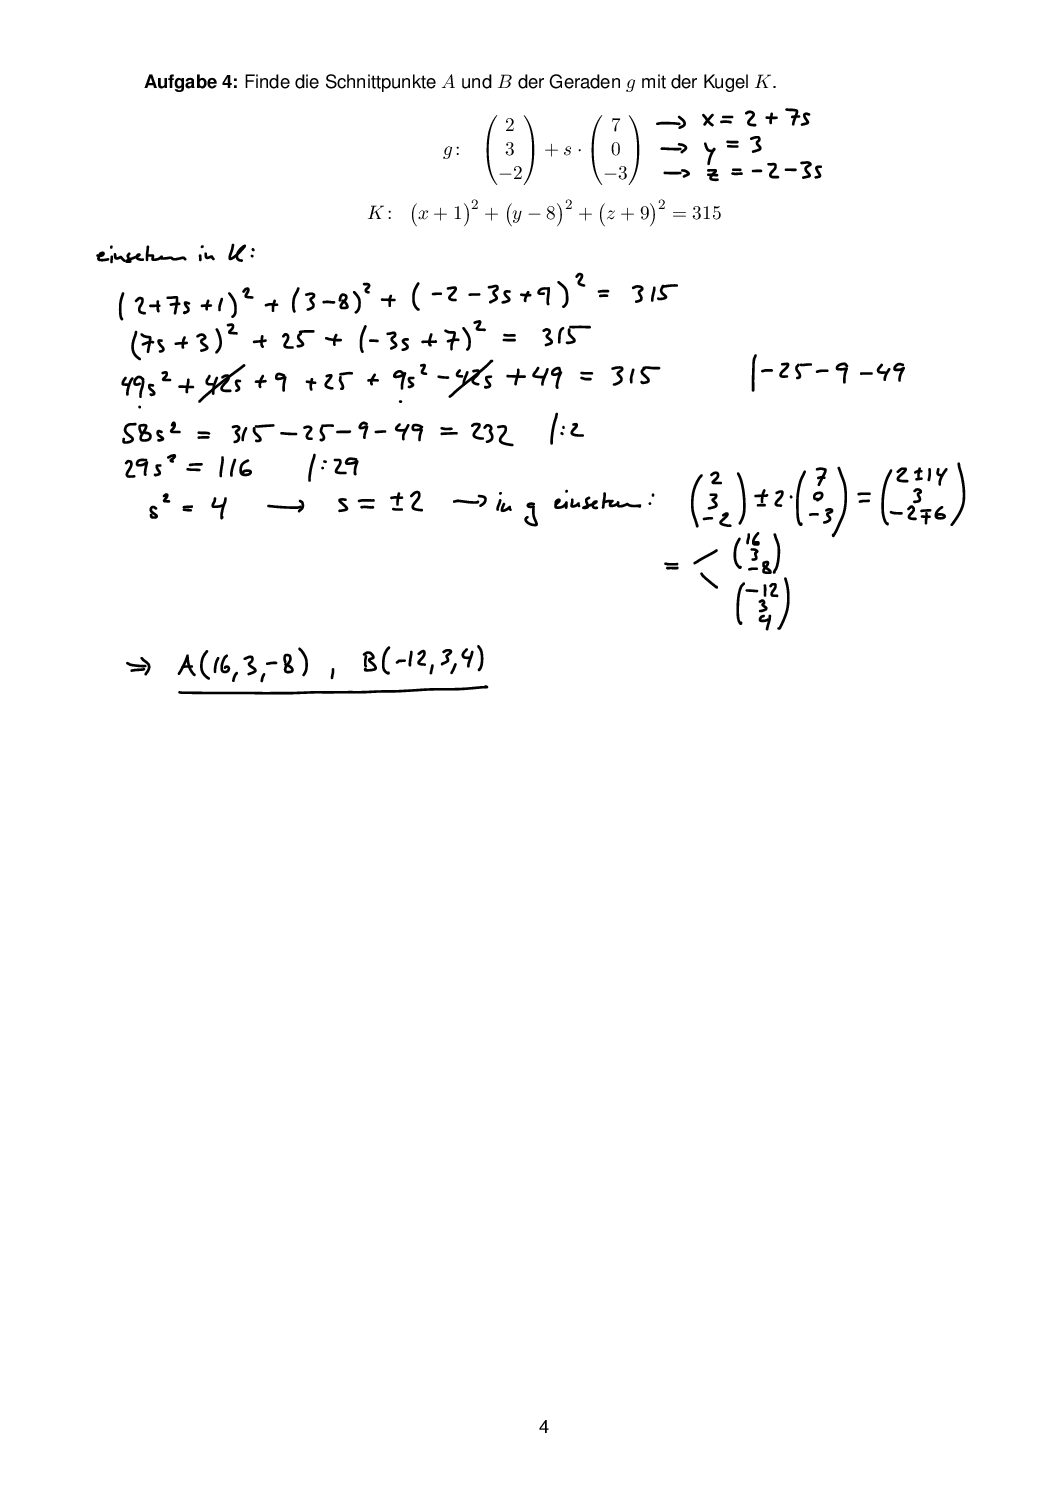 Aufgabe 4: Finde die Schnittpunkte A und B der Geraden g mit der Kugel K.
g: (2 3 −2) + s · (7 0 −3) → x = 2 + 7s
→ y = 3
→ z = -2 - 3s
K: (x + 1)² + (y − 8)² + (z + 9)² = 315
einsetzen in K:
(2+7s+1)² + (3-8)² + (-2-3s+9)² = 315
(7s+3)² + 25 + (-3s+7)² = 315
49s² + 42s + 9 + 25 + 9s² - 42s + 49 = 315 |-25-9-49
58s² = 315-25-9-49 = 232 |:2
29s² = 116 |:29
s² = 4 → s = ±2 → in g einsetzen: (2 3 -2) ± 2· (7 0 -3) = (2±14 3 -2∓6)
= < (16 3 -8)
(-12 3 4)
⇒ A(16,3,-8) , B(-12,3,4)
4